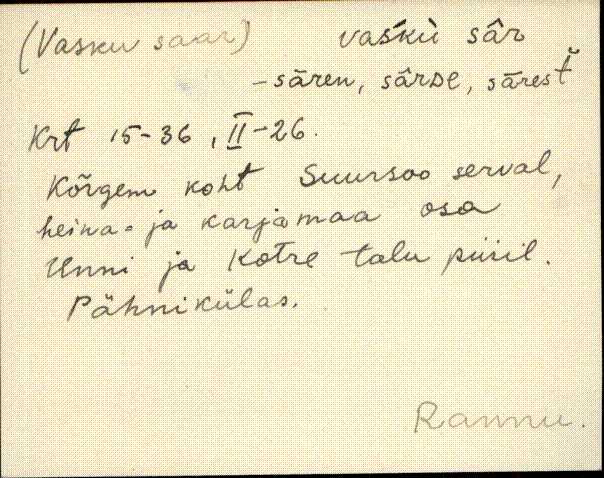 (Vasku saar) vaśkù sâr
– sären, särde, särest̆
Krt 15-36, II-26.
Kõrgem koht Suursoo serval,
heina- ja karjamaa osa
Unni ja Kotre talu piiril.
Pähnikülas.
Rannu.